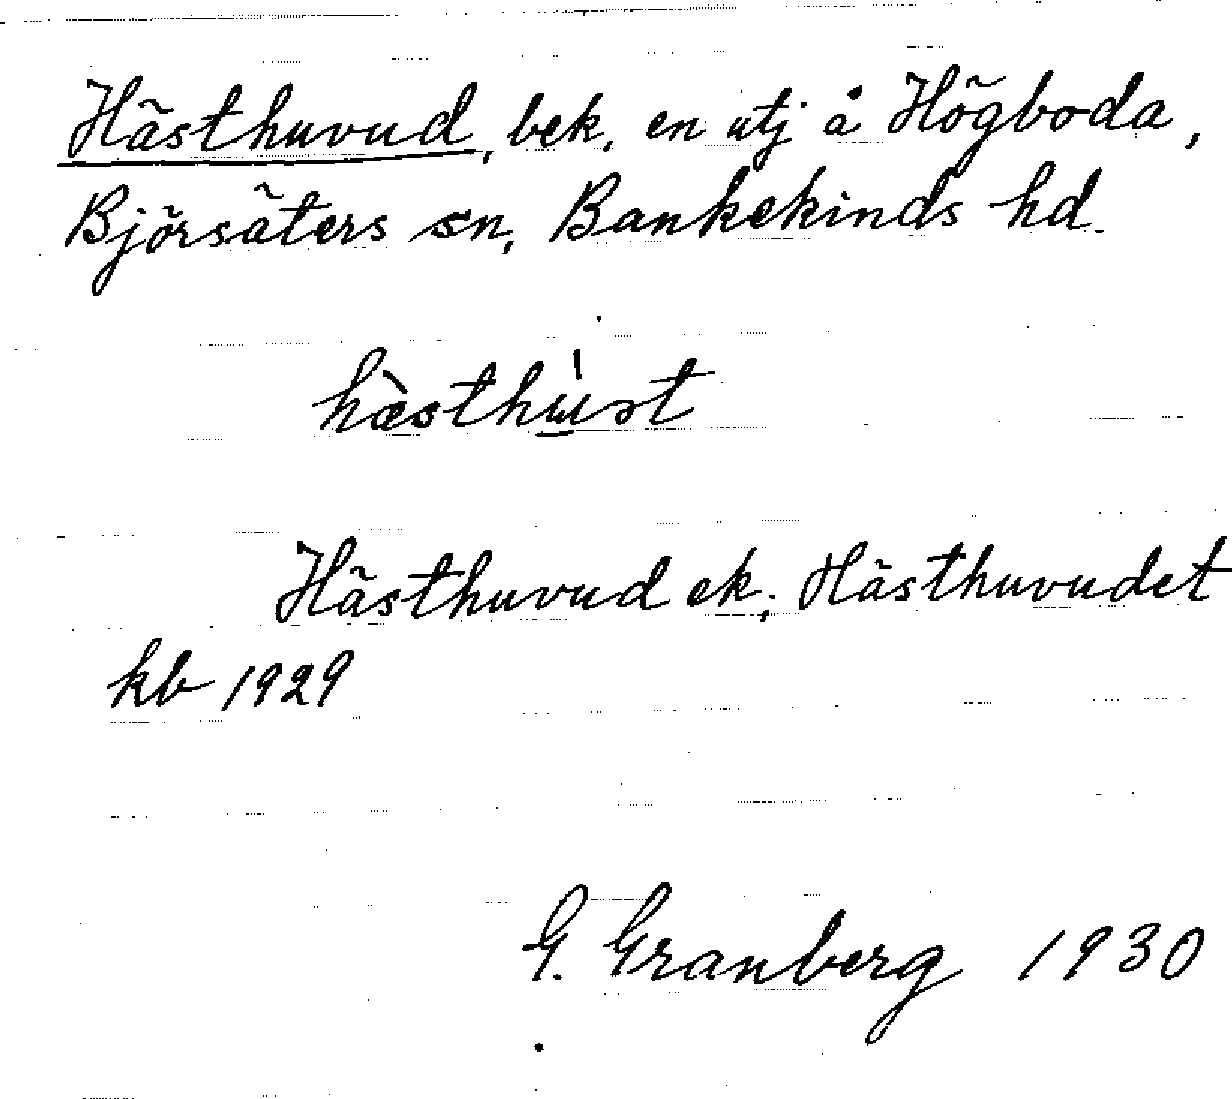 Hästhuvud, bek, en utj å Högboda,
Björsäters sn, Bankekinds hd.
Hästhuvud ek; Hästhuvudet
kb 1929
G. Granberg 1930